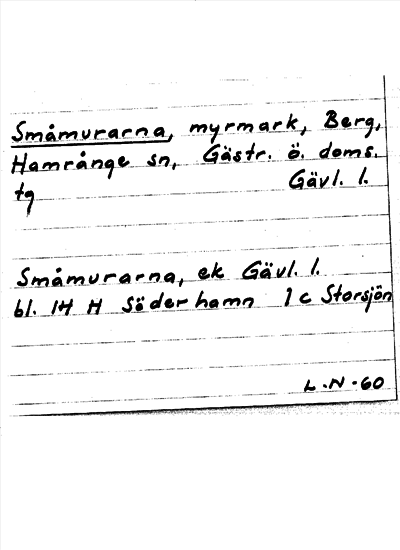 Småmurarna, myrmark, Berg,
Hamrånge sn, Gästr. ö. doms.
tg Gävl. l.
Småmurarna, ek Gävl. l.
bl. 14 H Söderhamn 1 c Storsjön
L.N-60